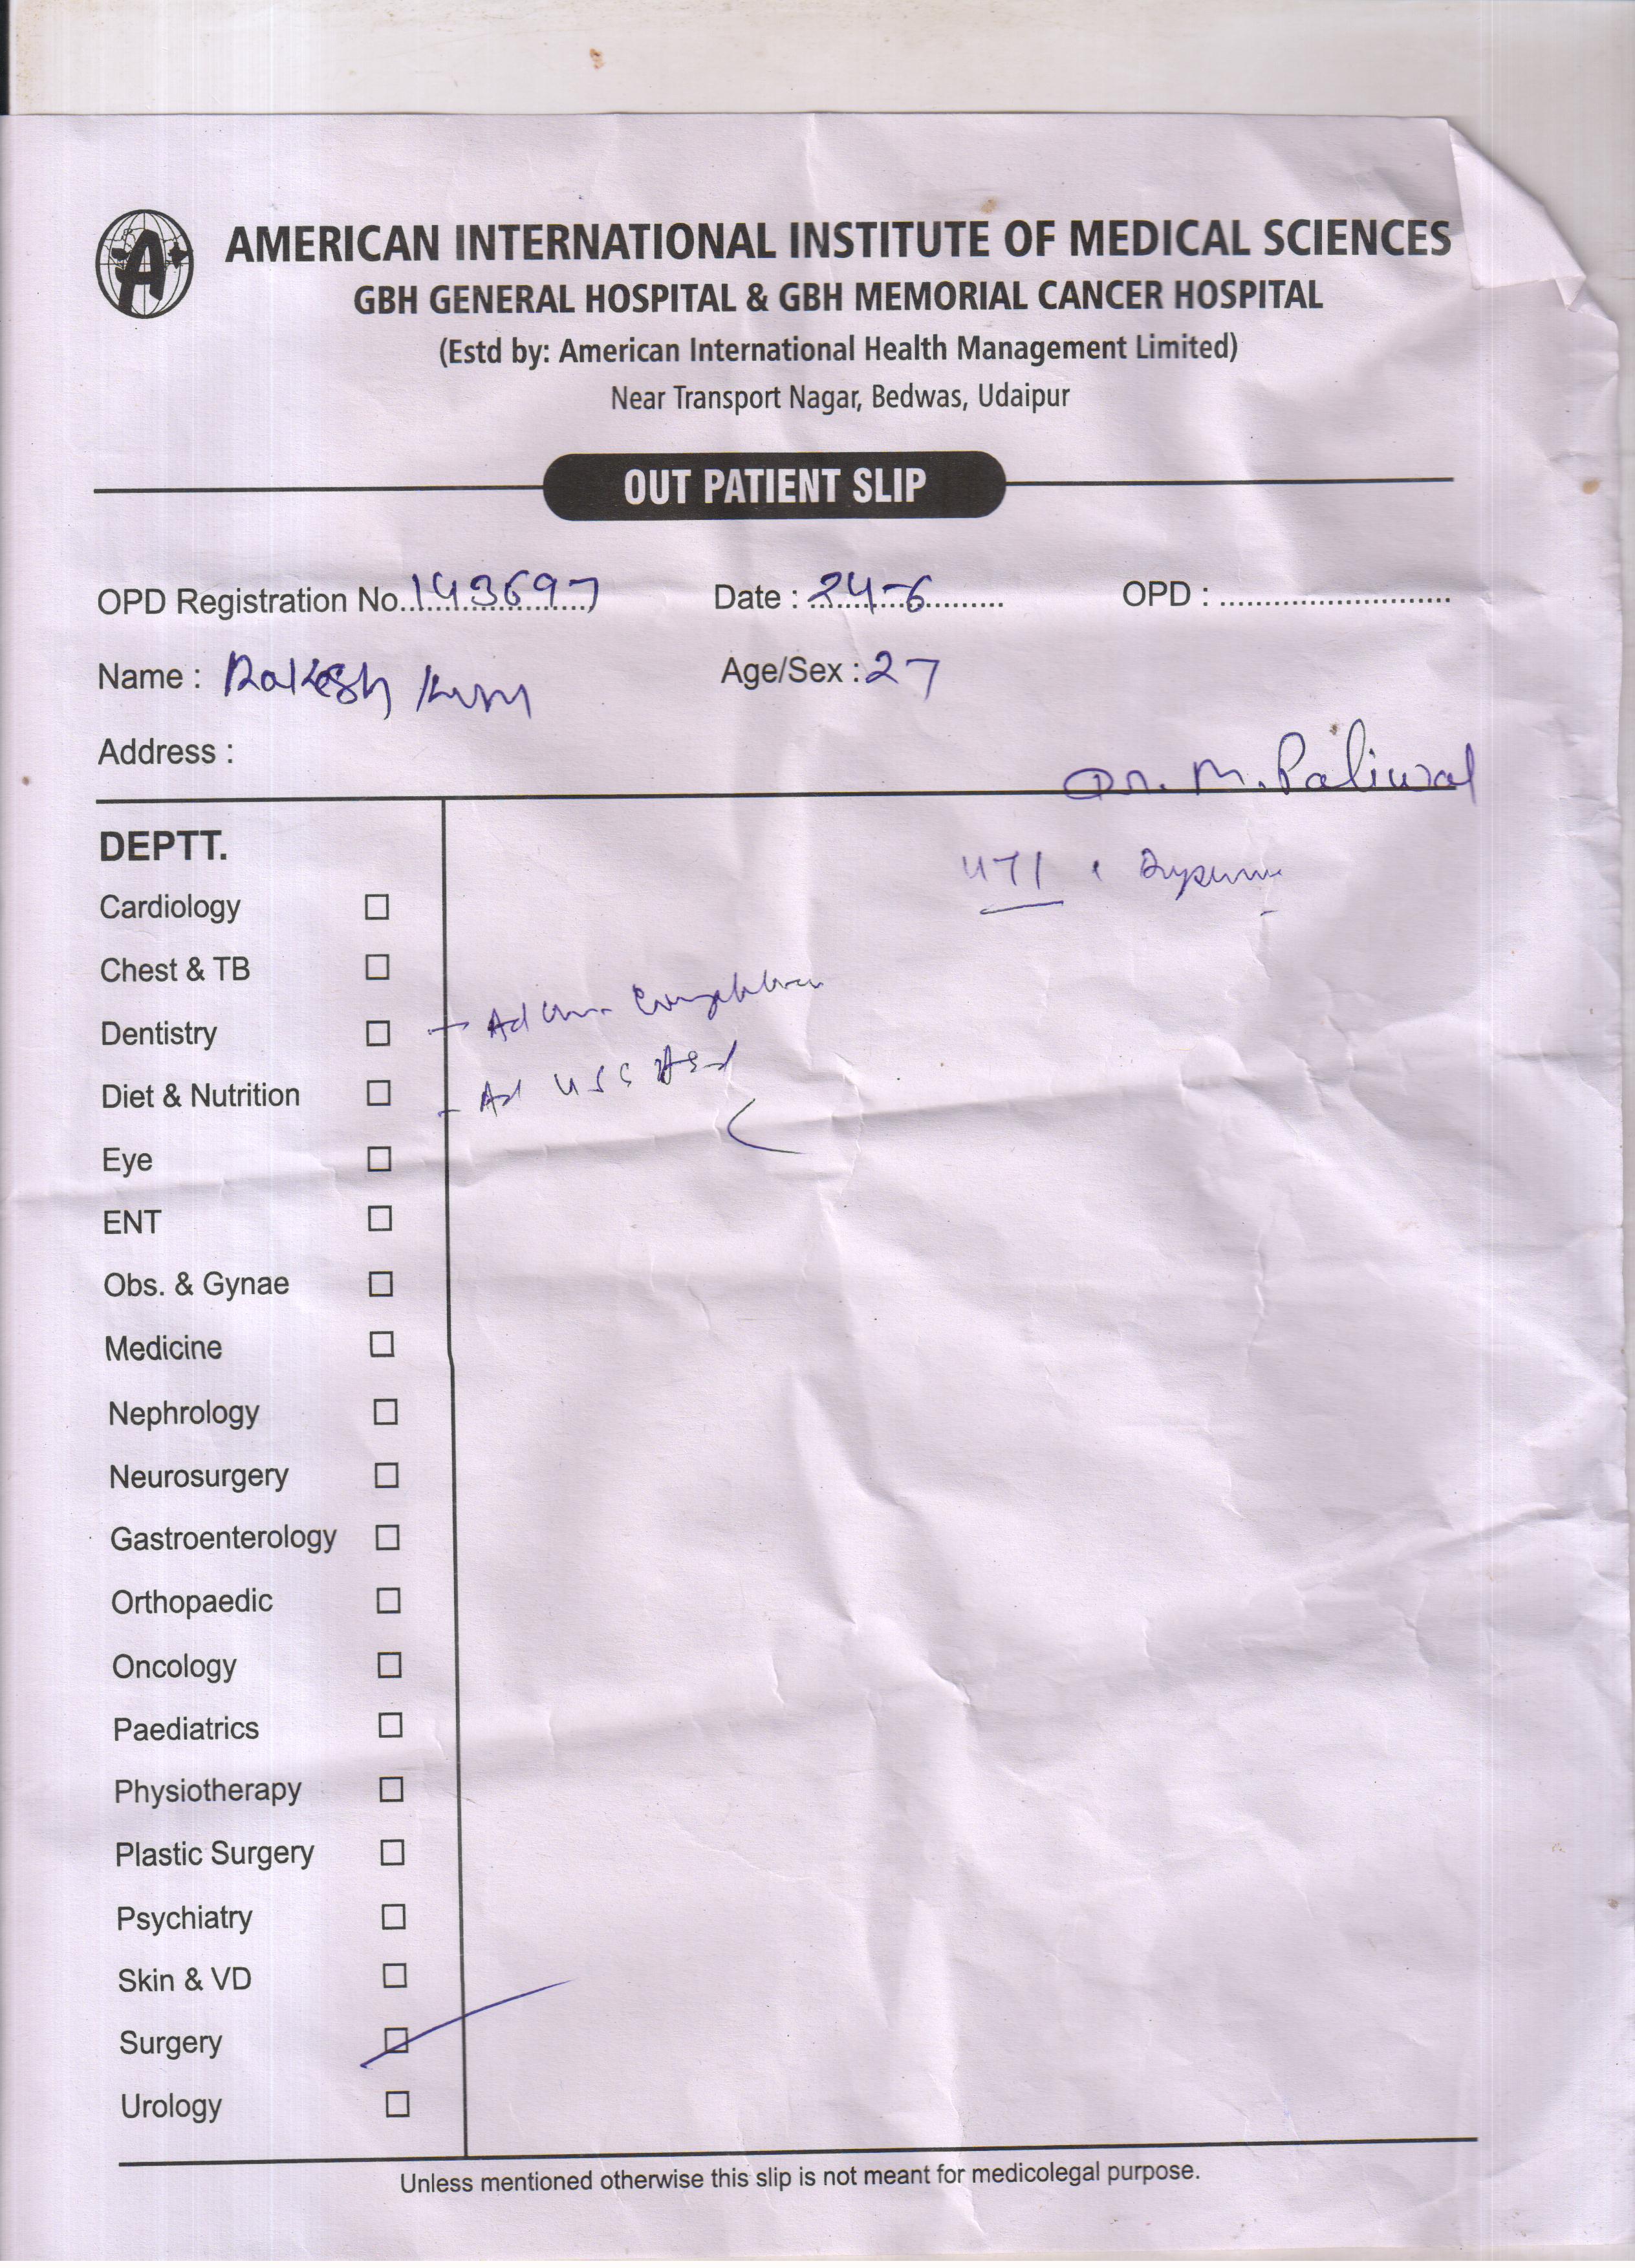 AMERICAN INTERNATIONAL INSTITUTE OF MEDICAL SCIENCES
GBH GENERAL HOSPITAL & GBH MEMORIAL CANCER HOSPITAL
(Estd by: American International Health Management Limited)
Near Transport Nagar, Bedwas, Udaipur
OUT PATIENT SLIP
OPD Registration No. 143697 Date : 24-6 OPD :
Name : Rakesh Age/Sex : 27
Address :
Dr. M. Paliwal
DEPTT.
UTI
Cardiology
Chest & TB
Dentistry
Diet & Nutrition
Eye
ENT
Obs. & Gynae
Medicine
Nephrology
Neurosurgery
Gastroenterology
Orthopaedic
Oncology
Paediatrics
Physiotherapy
Plastic Surgery
Psychiatry
Skin & VD
Surgery
Urology
Unless mentioned otherwise this slip is not meant for medicolegal purpose.